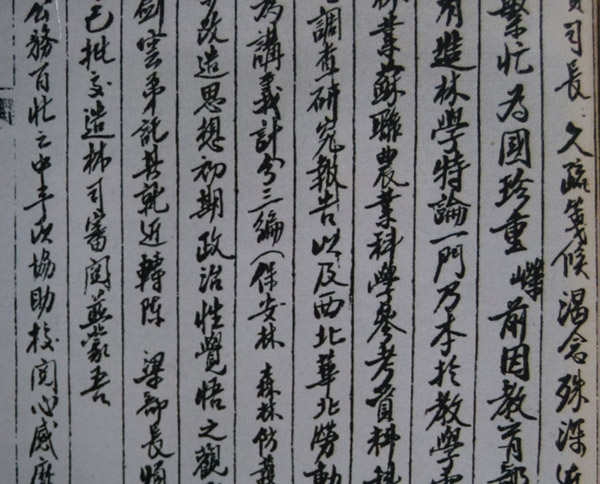 司長 久疏箋候渴念殊深近
繁忙為國珍重 嶸前因教育部
有造林學特論一門乃本於教學
林業蘇聯農業科學參考資料
調查研究報告以及西北華北勞動
為講義計分三編(保安林 森林防護
改造思想初期政治性覺悟之觀
劍雲弟託其就近轉陳 梁部長
已批交造林司審閱並蒙吾
公務百忙之中予以協助校閱心感